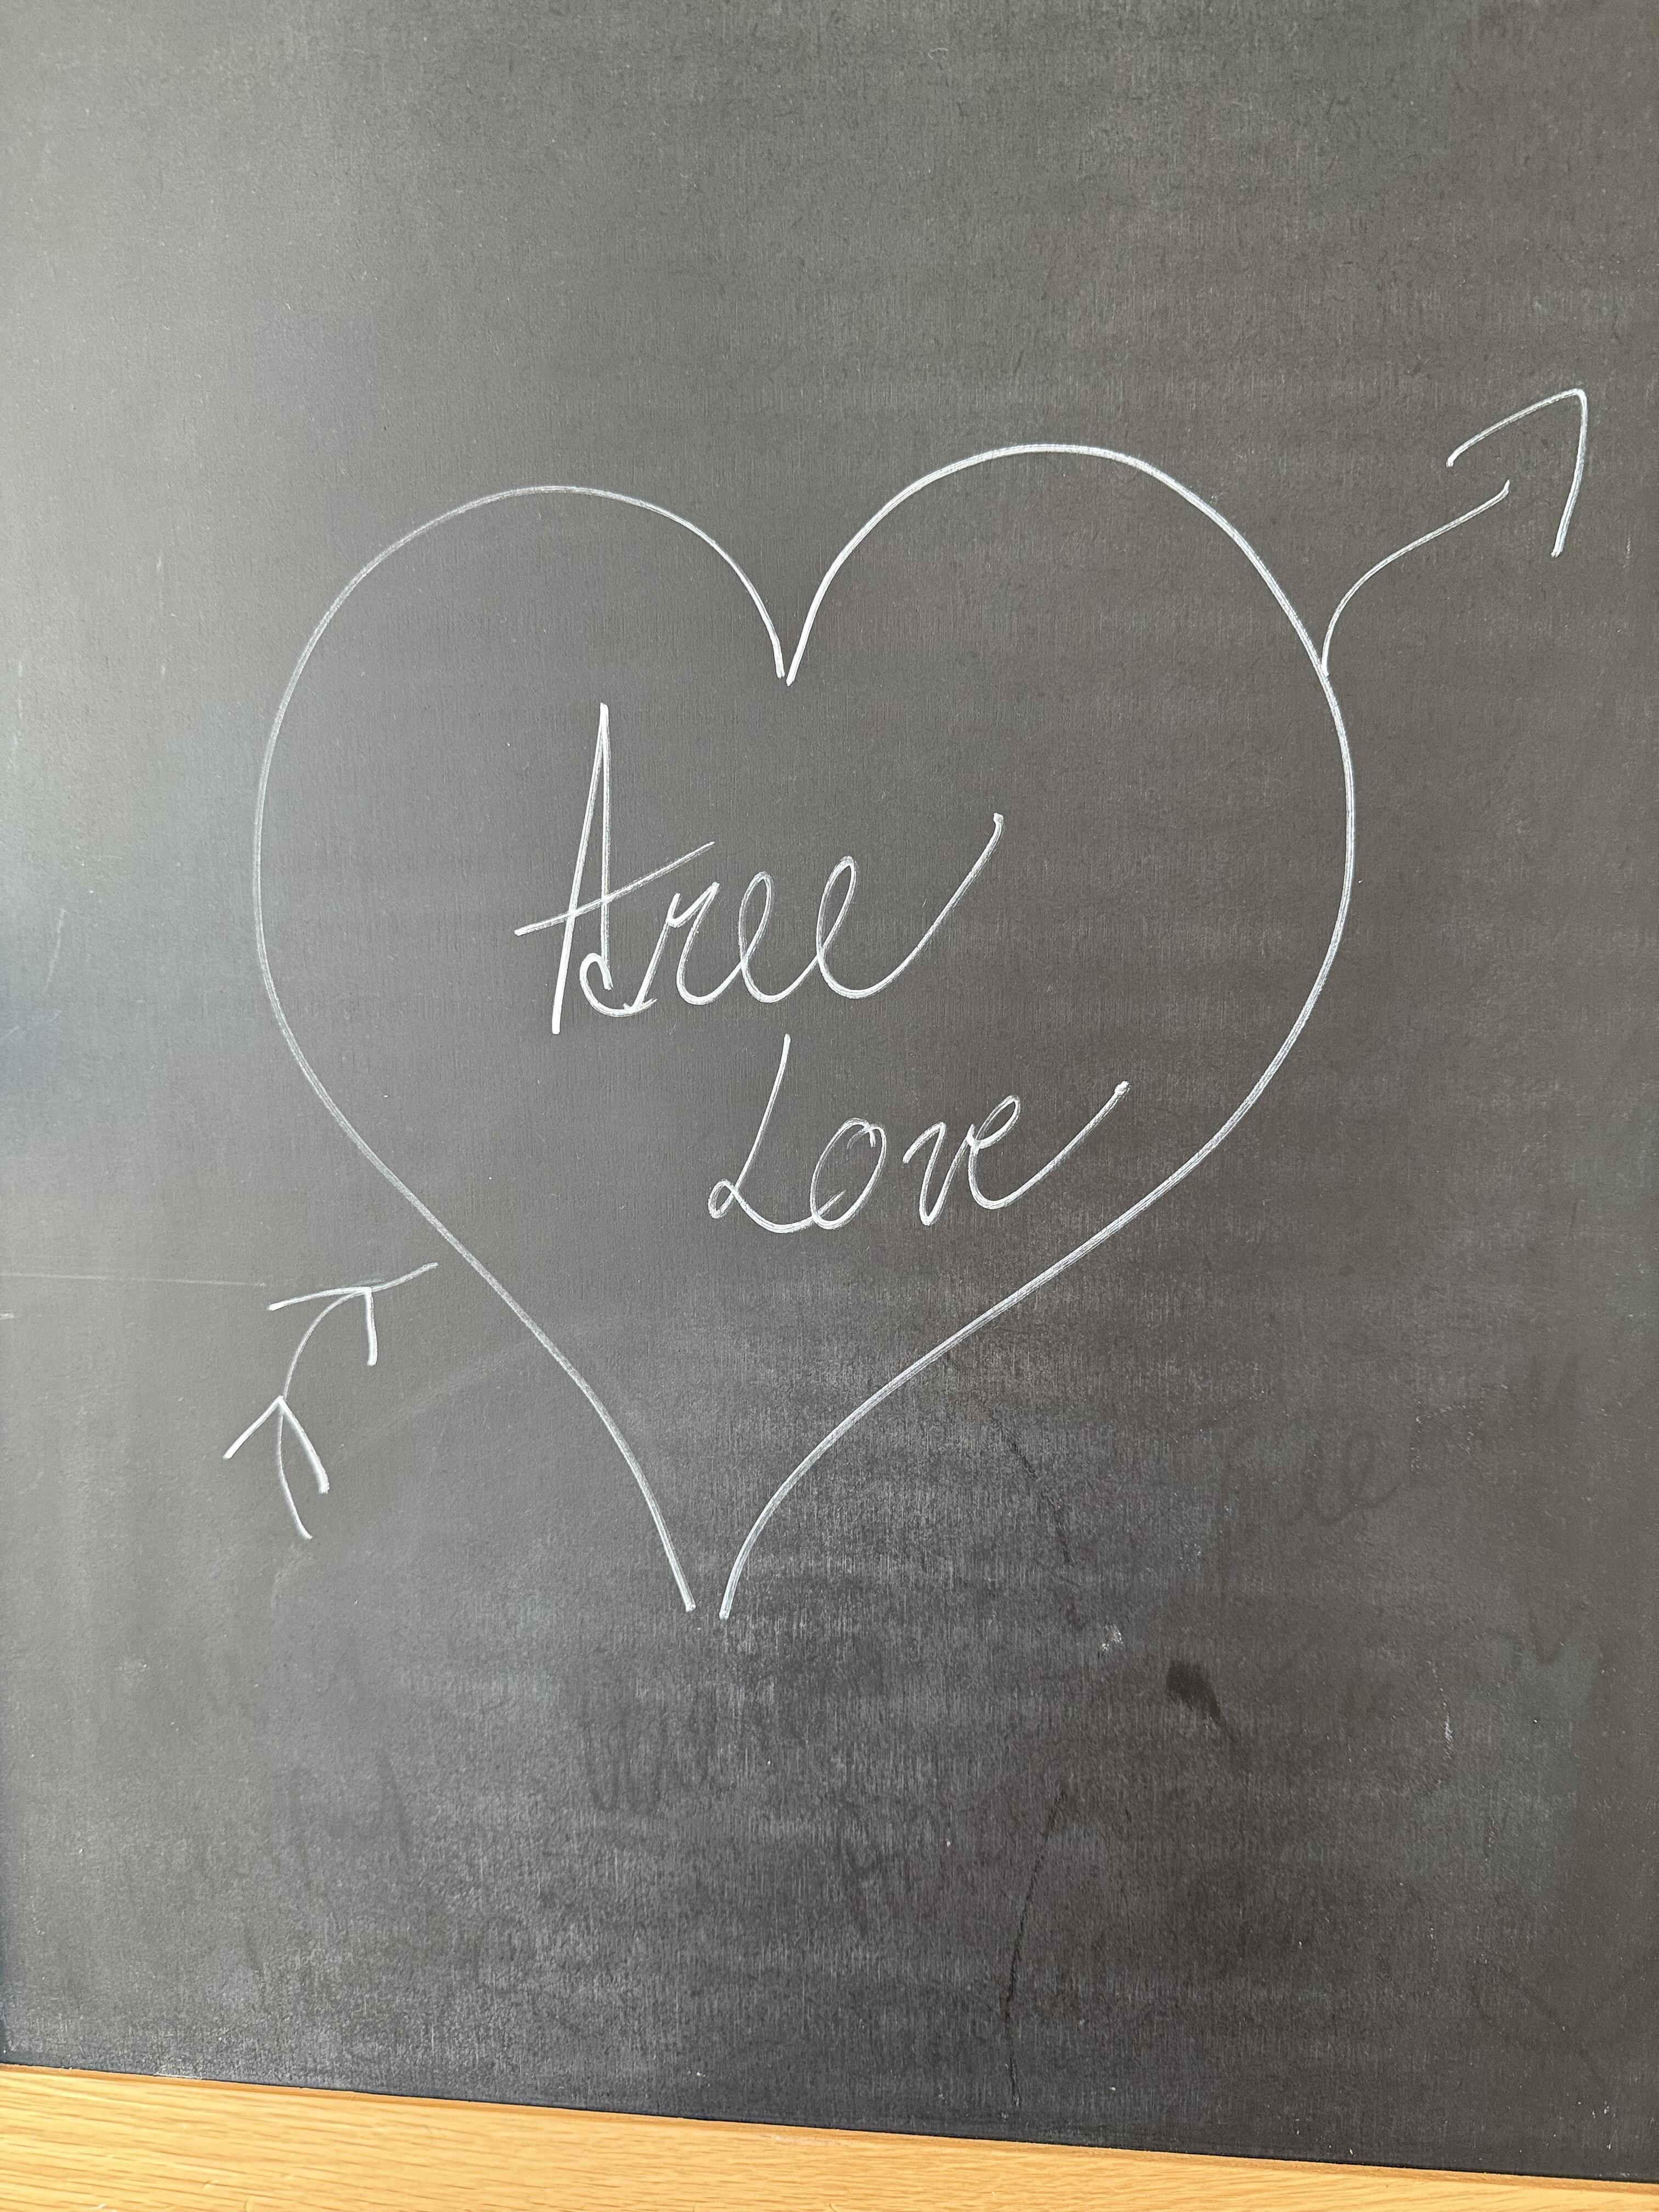 Aree
Love